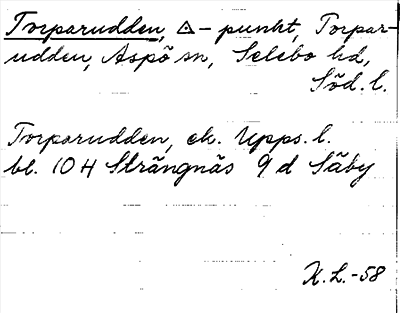 Torparudden, △ - punkt, Torpar-
udden, Aspö sn, Selebo hd,
Söd. l.
Torparudden, ek. Upps. l.
bl. 10 H Strängnäs 9 d Säby
K. L. -58